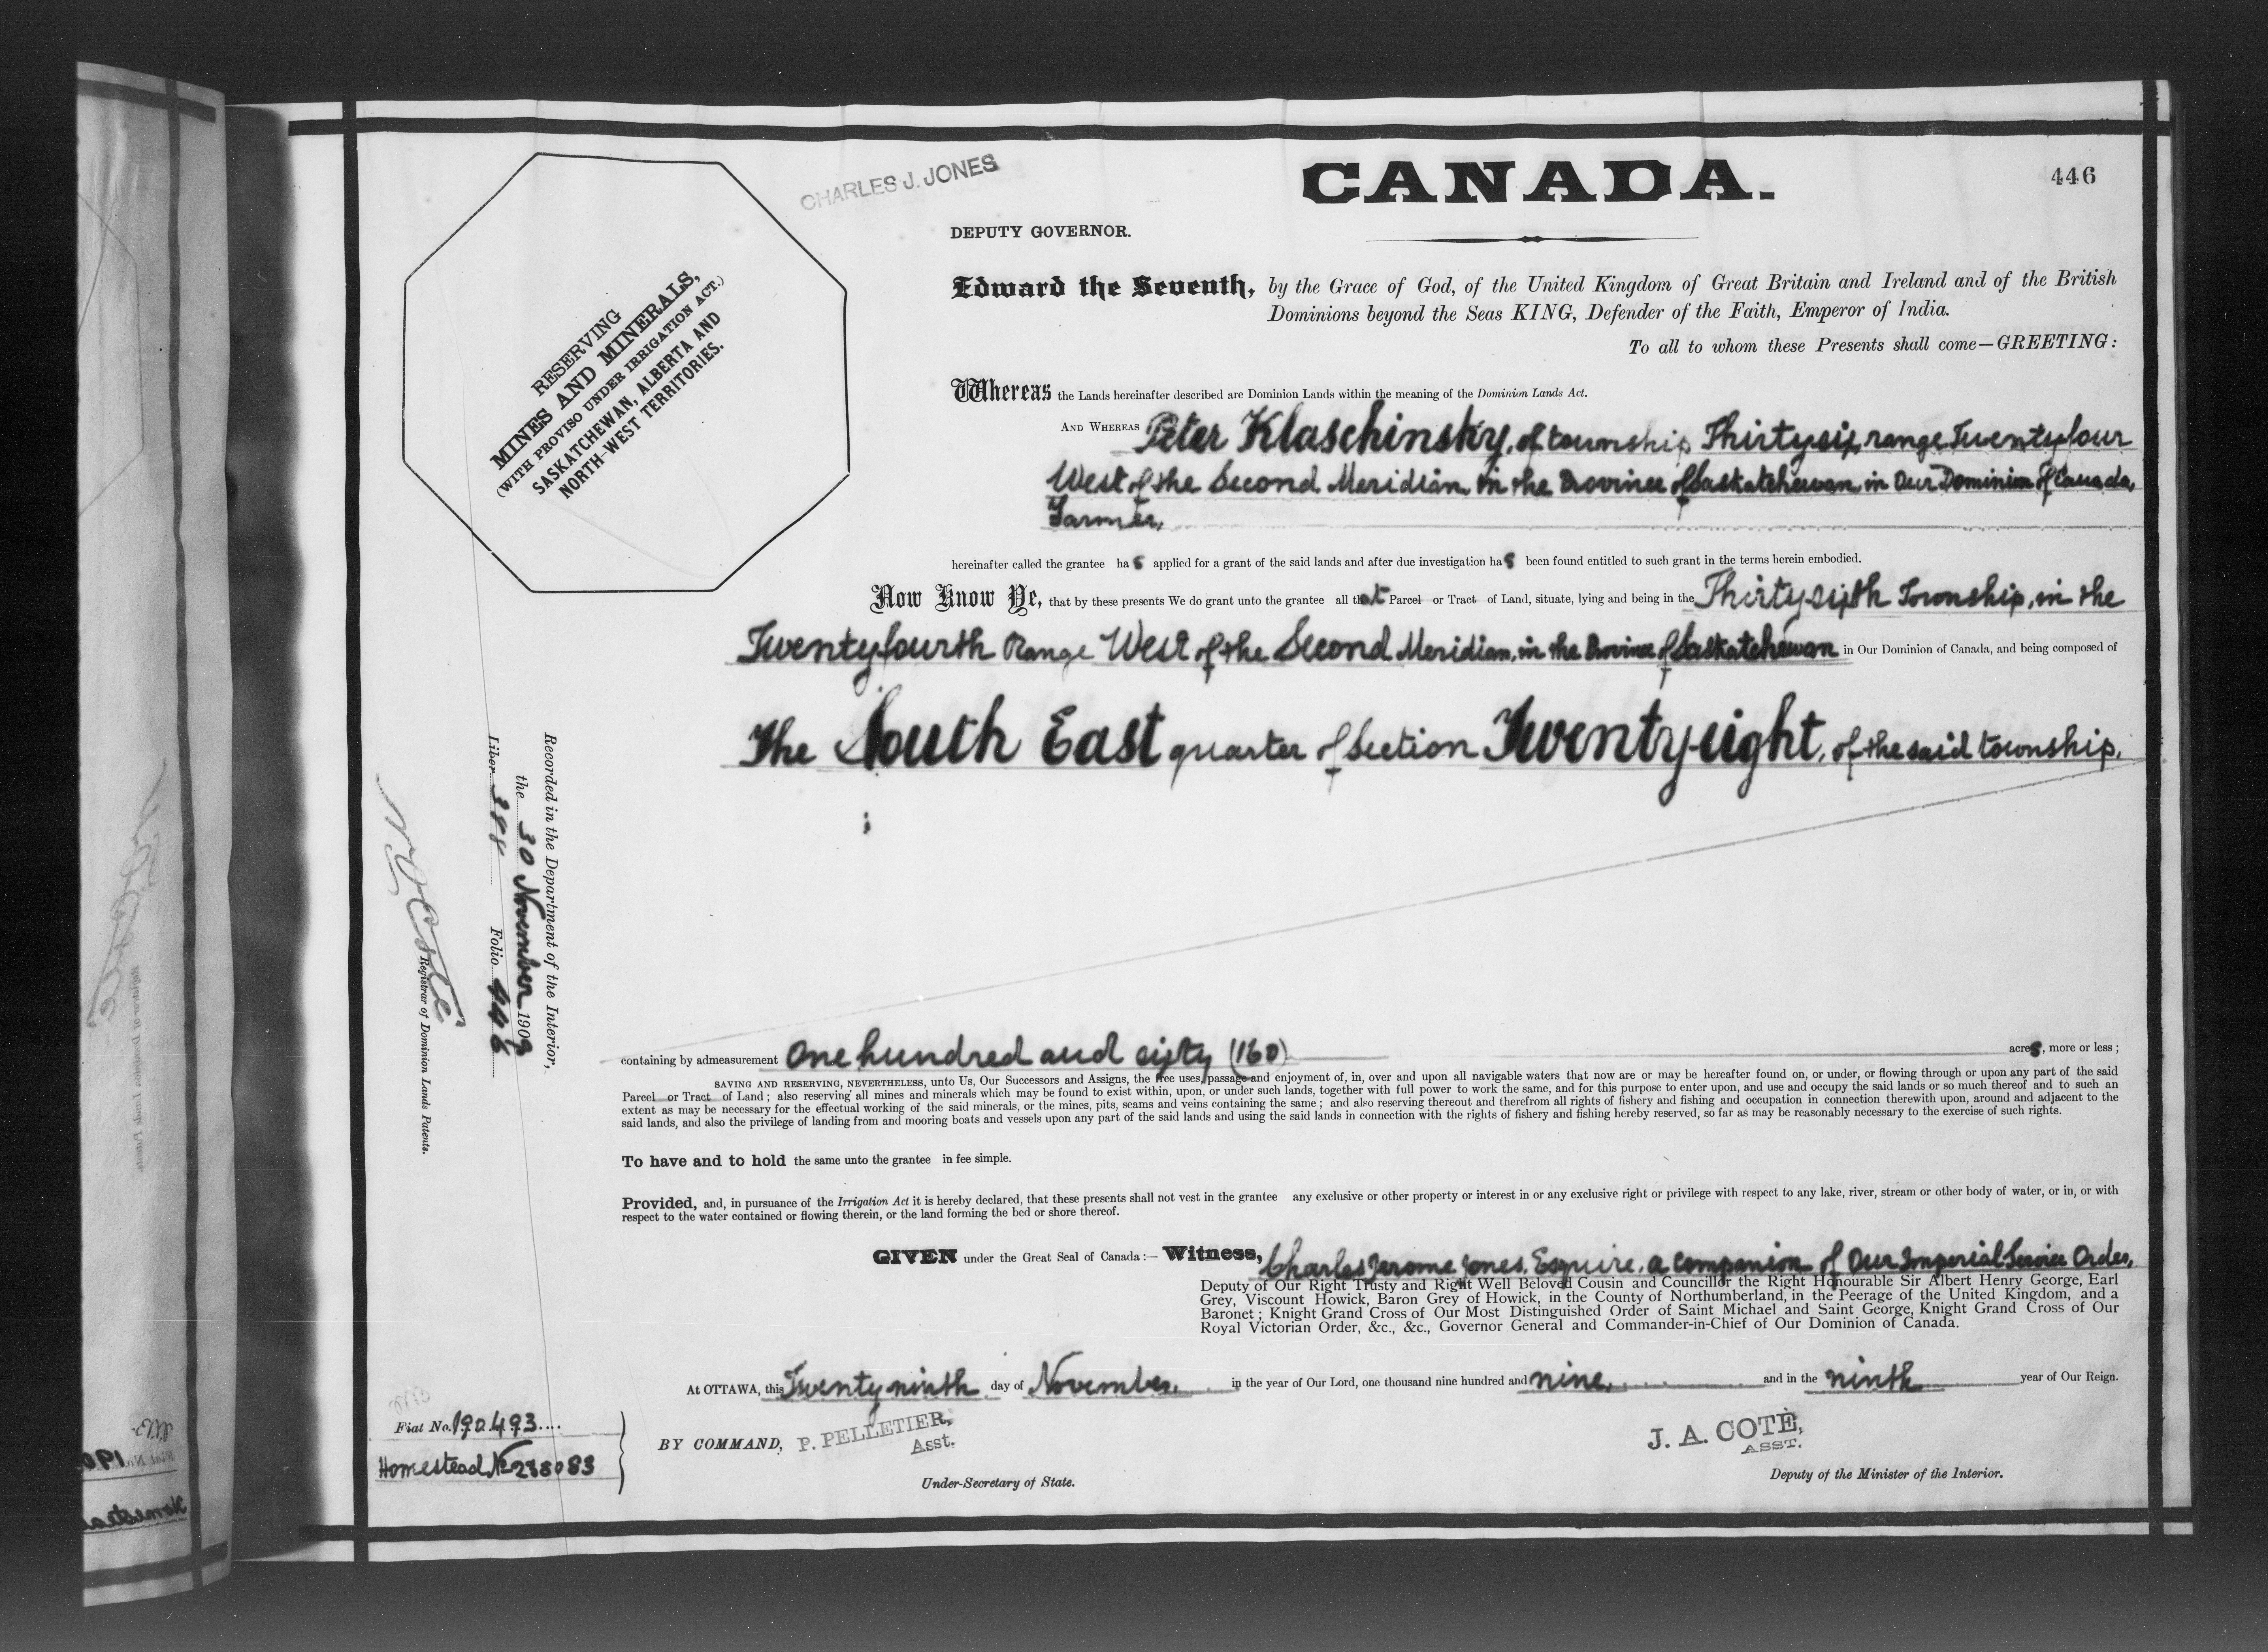 CHARLES J. JONES
CANADA.
446
DEPUTY GOVERNOR.
RESERVING
MINES AND MINERALS,
(WITH PROVISO UNDER IRRIGATION ACT.)
SASKATCHEWAN, ALBERTA AND
NORTH-WEST TERRITORIES.
Edward the Seventh, by the Grace of God, of the United Kingdom of Great Britain and Ireland and of the British
Dominions beyond the Seas KING, Defender of the Faith, Emperor of India.
To all to whom these Presents shall come—GREETING:
Whereas the Lands hereinafter described are Dominion Lands within the meaning of the Dominion Lands Act.
AND WHEREAS Peter Klaschinsky, of township Thirtysix, range Twentyfour
West of the Second Meridian, in the Province of Saskatchewan, in Our Dominion of Canada,
Farmer,
hereinafter called the grantee has applied for a grant of the said lands and after due investigation has been found entitled to such grant in the terms herein embodied.
Now Know Ye, that by these presents We do grant unto the grantee all that Parcel or Tract of Land, situate, lying and being in the Thirtysixth Township, in the
Twentyfourth Range West of the Second Meridian, in the Province of Saskatchewan in Our Dominion of Canada, and being composed of
The South East quarter of Section Twentyeight, of the said township.
containing by admeasurement One hundred and sixty (160) acres, more or less;
SAVING AND RESERVING, NEVERTHELESS, unto Us, Our Successors and Assigns, the free uses, passage and enjoyment of, in, over and upon all navigable waters that now are or may be hereafter found on, or under, or flowing through or upon any part of the said
Parcel or Tract of Land; also reserving all mines and minerals which may be found to exist within, upon, or under such lands, together with full power to work the same, and for this purpose to enter upon, and use and occupy the said lands or so much thereof and to such an
extent as may be necessary for the effectual working of the said minerals, or the mines, pits, seams and veins containing the same; and also reserving thereout and therefrom all rights of fishery and fishing and occupation in connection therewith upon, around and adjacent to the
said lands, and also the privilege of landing from and mooring boats and vessels upon any part of the said lands and using the said lands in connection with the rights of fishery and fishing hereby reserved, so far as may be reasonably necessary to the exercise of such rights.
To have and to hold the same unto the grantee in fee simple.
Provided, and, in pursuance of the Irrigation Act it is hereby declared, that these presents shall not vest in the grantee any exclusive or other property or interest in or any exclusive right or privilege with respect to any lake, river, stream or other body of water, or in, or with
respect to the water contained or flowing therein, or the land forming the bed or shore thereof.
GIVEN under the Great Seal of Canada:— Witness, Charles Jerome Jones, Esquire, a companion of Our Imperial Service Order,
Deputy of Our Right Trusty and Right Well Beloved Cousin and Councillor the Right Honourable Sir Albert Henry George, Earl
Grey, Viscount Howick, Baron Grey of Howick, in the County of Northumberland, in the Peerage of the United Kingdom, and a
Baronet; Knight Grand Cross of Our Most Distinguished Order of Saint Michael and Saint George, Knight Grand Cross of Our
Royal Victorian Order, &c., &c., Governor General and Commander-in-Chief of Our Dominion of Canada.
At OTTAWA, this Twentyninth day of November, in the year of Our Lord, one thousand nine hundred and nine, and in the ninth year of Our Reign.
BY COMMAND, P. PELLETIER,
Asst.
Under-Secretary of State.
J. A. COTÉ,
ASST.
Deputy of the Minister of the Interior.
Recorded in the Department of the Interior,
the 30 November 1909
Liber 388 Folio 446
N. O. Coté
Registrar of Dominion Lands Patents.
Fiat No. 190493
Homestead No 238083